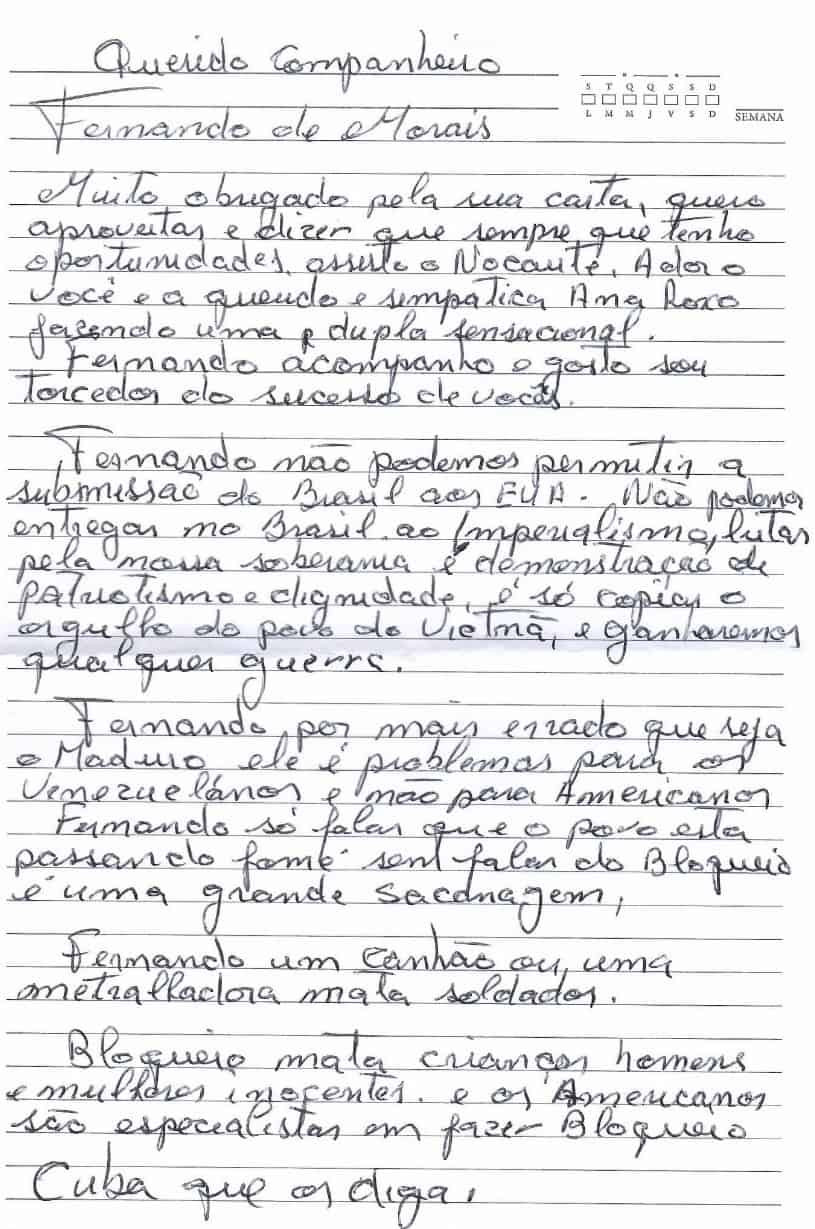 Querido Companheiro
S T Q Q S S D
L M M J V S D
SEMANA
Fernando de Morais
Muito obrigado pela sua carta, quero
aproveitar e dizer que sempre que tenho
oportunidades, assisto o Nocaute, Adoro
você e a querida e simpatica Ana Roxo
fazendo uma dupla sensacional.
Fernando acompanho e gosto sou
torcedor do sucesso de vocês.
Fernando não podemos permitir a
submissão do Brasil aos EUA. Não podemos
entregar no Brasil ao Imperialismo, lutar
pela nossa soberania é demonstração de
patriotismo e dignidade, é só copiar o
orgulho do povo do Vietnã, e ganharemos
qualquer guerra.
Fernando, por mais errado que seja
o Maduro ele é problemas para os
Venezuelános e não para Americanos
Fernando só falar que o povo esta
passando fome sem falar do Bloqueio
é uma grande sacanagem,
Fernando um canhão ou uma
metralhadora mata soldados.
Bloqueio mata crianças homens
e mulheres inocentes. e os Americanos
são especialistas em fazer Bloqueio
Cuba que os diga.